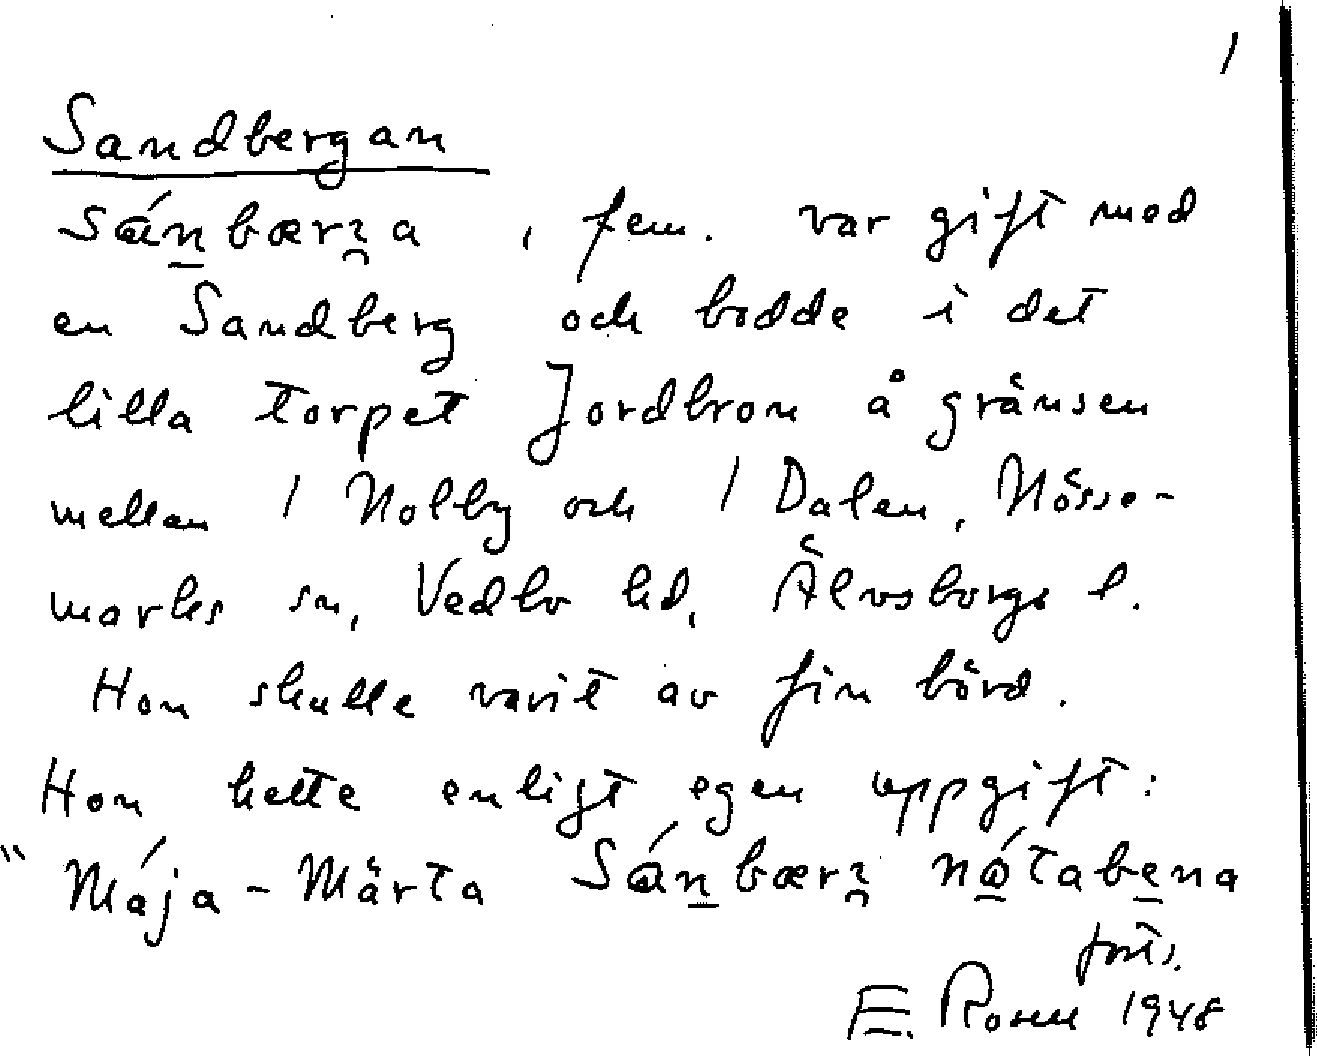 1
Sandbergan
sán̲bærʒ̑a, fem. var gift med
en Sandberg och bodde i det
lilla torpet Jordbron å gränsen
mellan 1 Nolby och 1 Dalen, Nösse-
marks sn, Vedbo hd, Älvsborgs l.
Hon skulle varit av fin börd.
Hon hette enligt egen uppgift:
"Mája-Märta Sán̲bærʒ̑ nǿ̲tabe̲na
forts.
E. Rosen 1948